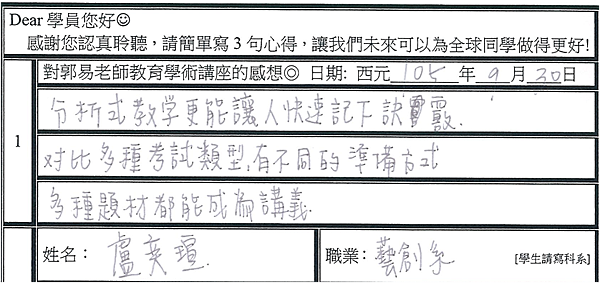 Dear 學員您好☺
感謝您認真聆聽，請簡單寫 3 句心得，讓我們未來可以為全球同學做得更好!
對郭易老師教育學術講座的感想◎ 日期: 西元 105 年 9 月 30 日
1
分析式教学更能讓人快速記下訣竅
对比多種考試類型,有不同的準備方式
多種題材都能成為講義.
姓名： 盧奕瑄. 職業： 藝創系 [學生請寫科系]